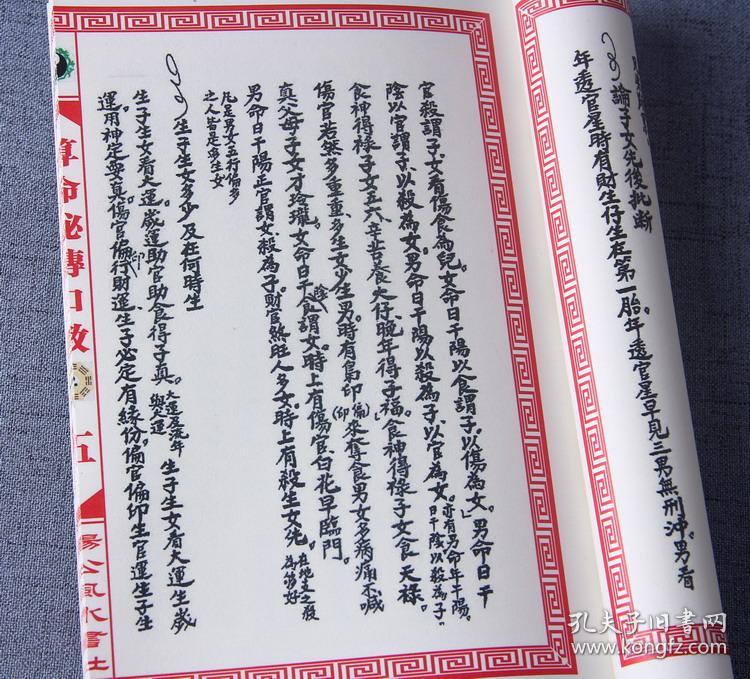 論子女先後批断
年透官星時有財生仔生在第一胎。年透官星早見三男無刑沖。男看
官殺謂子女看傷食為兒。女命日干陽以食謂子，以傷為女。男命日干
陰以官謂子以殺為女。男命日干陽以殺為子以官為女。亦有男命年干陽。日干陰以殺為子。
食神得祿子女五六，辛苦養大仔，晚年得子福。食神得祿子女食天祿。
傷官若然多重重，多生女少生男。時有梟印(偏印)來奪食男女多病痛不喊
真父母子女才玲瓏。女命日干陰食謂女。時上有傷官，白花早臨門。
男命日干陽正官謂女殺為子財官煞旺人多女。時上有殺生女先。在地支之殺為第好
凡是男女五行偏多之人皆定多生女
生子生女多少及在何時生
生子生女看大運。歲運助官助食得子真。大運及流年與大運生子生女看大運生歲
運用神定要真。傷官偏印行財運生子必定有緣份。偏官偏印生官運生子生
算命秘傳口教
五
楊公風水書社
孔夫子旧书网
www.kongfz.com